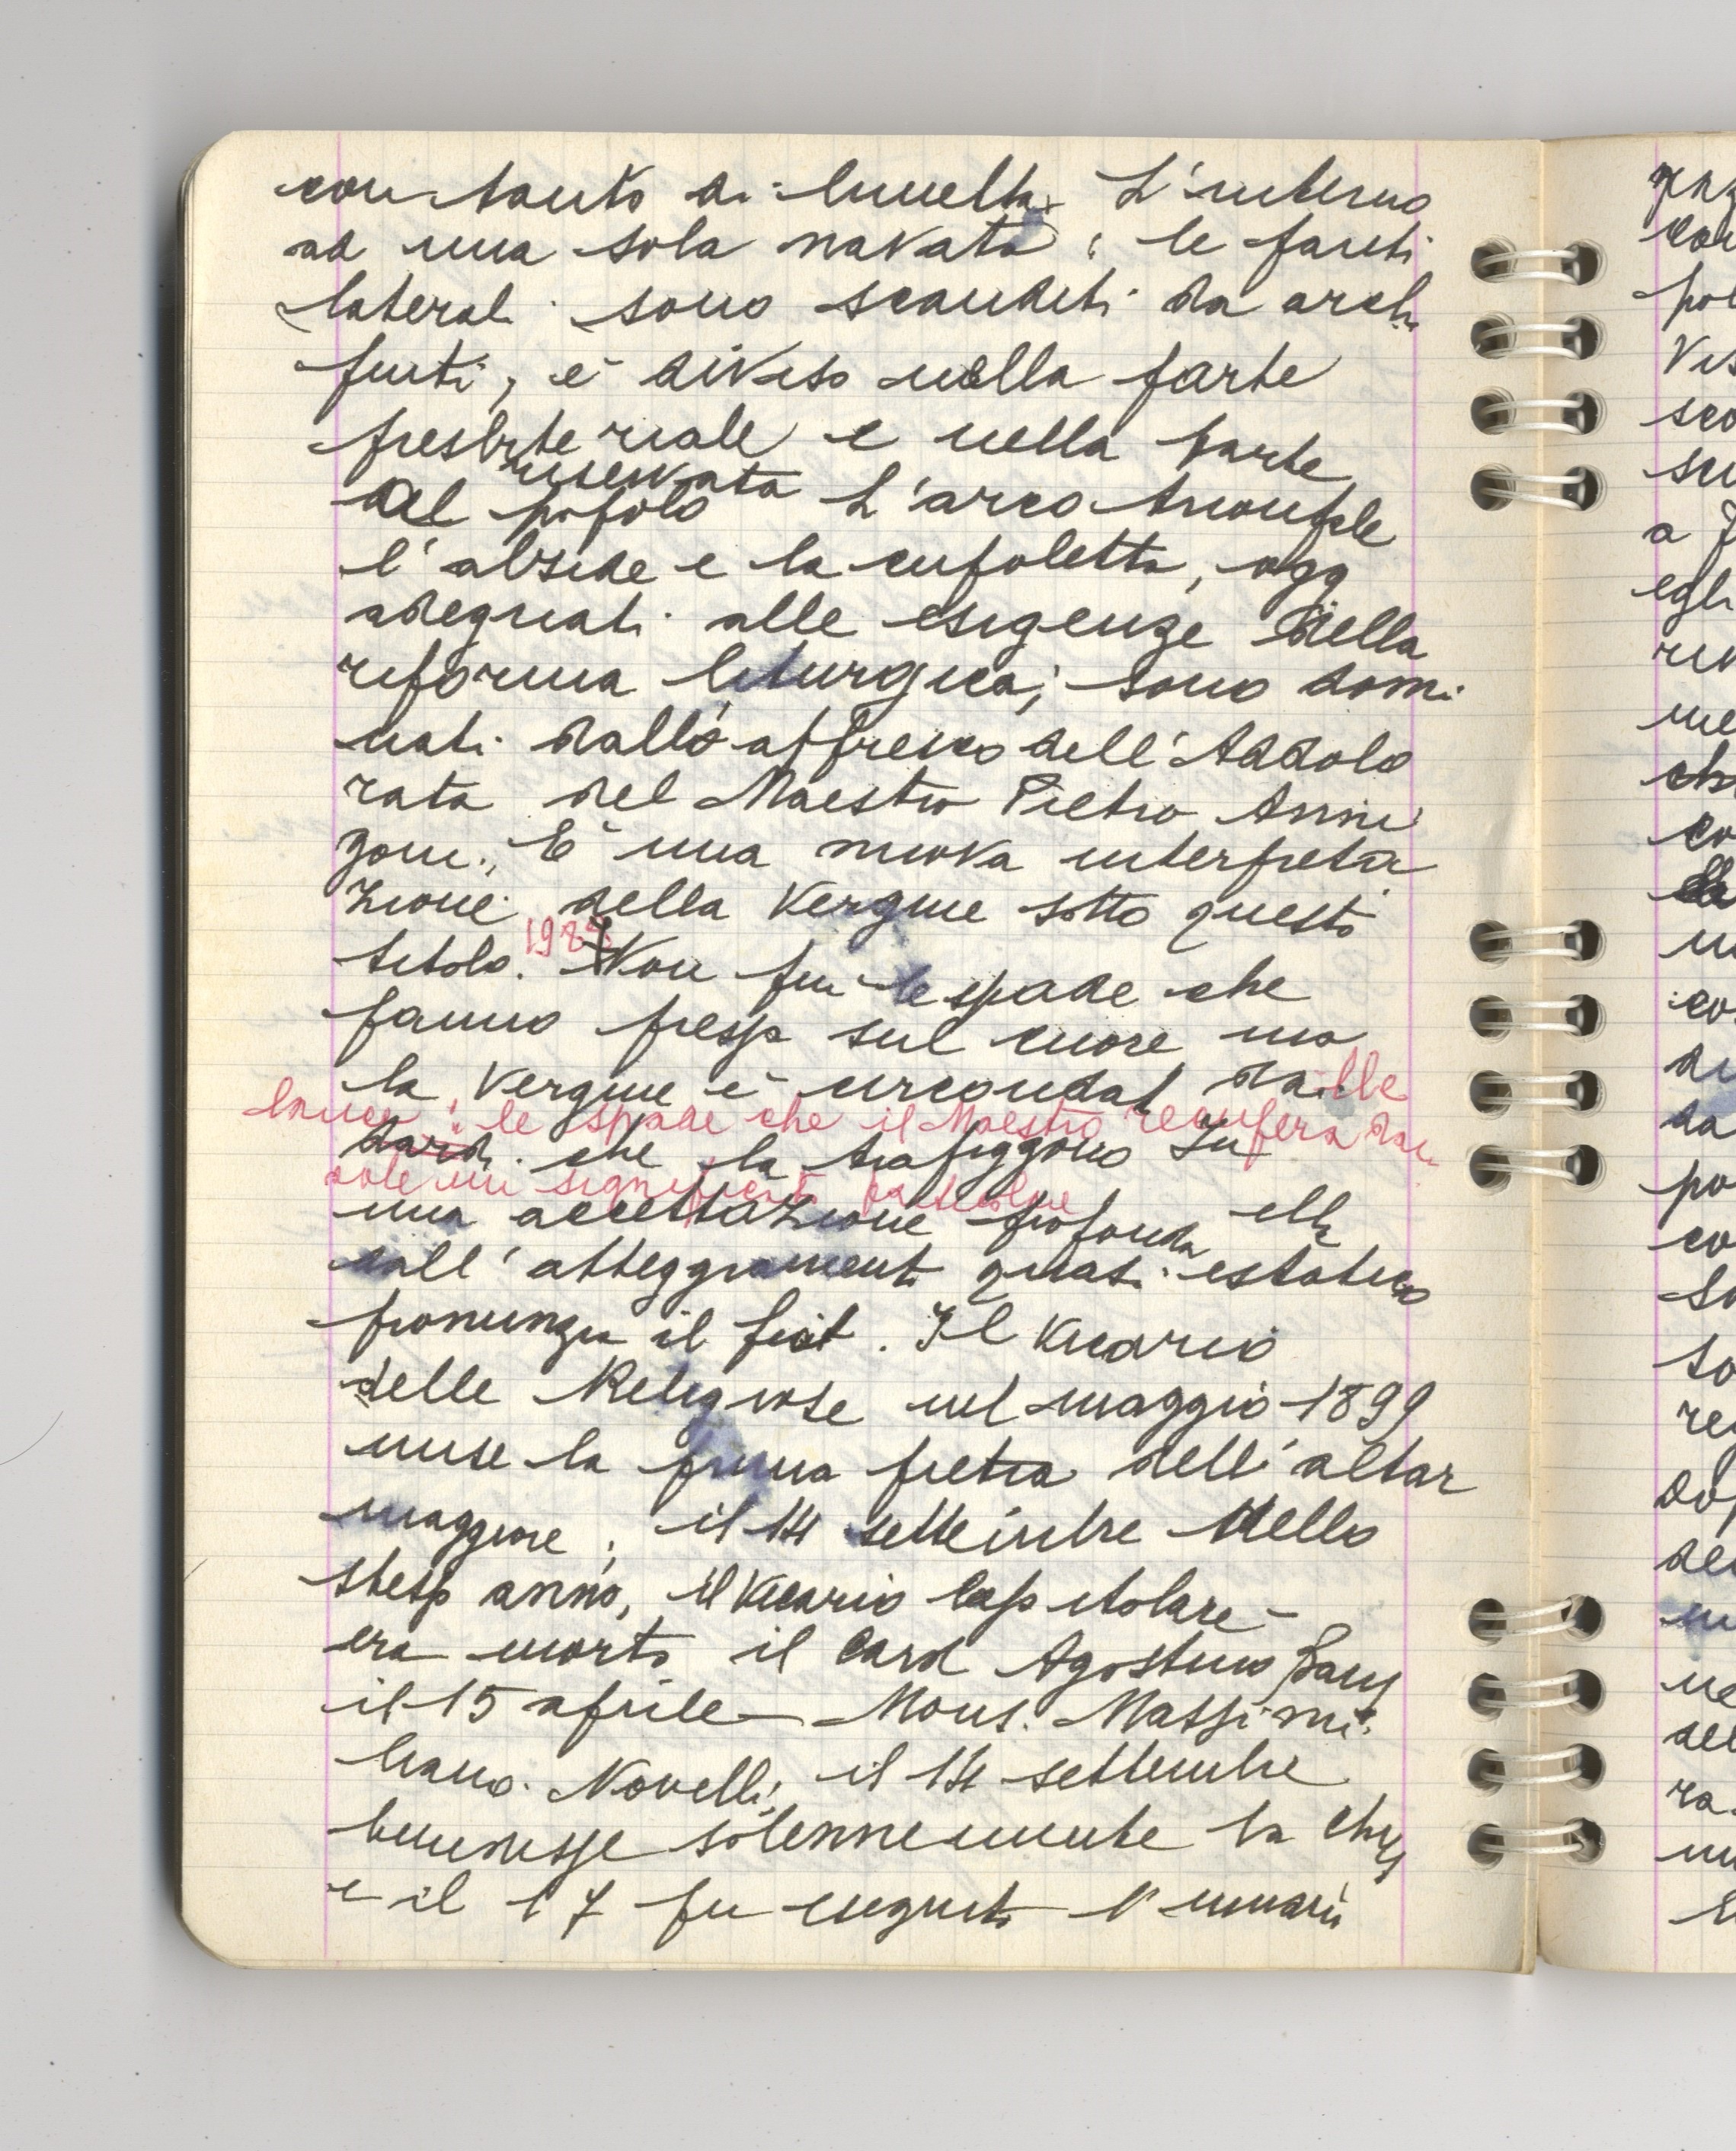 con tanto di lunetta. L'interno
ad una sola navata; le pareti
laterali sono scanditi da archi
finti, è diviso nella parte
presbiteriale e nella parte
riservata
del popolo L'arco trionfale
l'abside e la cupoletta, oggi
adeguati alle esigenze della
riforma liturgica, sono domi
nati dall'affresco dell'Addolo
rata del Maestro Pietro Anni
goni. È una nuova interpreta
zione della Vergine sotto questo
titolo. 1984 Non più le spade che
fanno presa sul cuore ma
la Vergine è circondata dalle
lance: le spade che il Maestro recupera dan
dardi che la trafiggono In
dole un significato particolare
una accettazione profonda ella
dall'atteggiamento quasi estatico
pronunzia il fiat. Il Vicario
delle Religiose nel maggio 1899
mise la prima pietra dell'altar
maggiore; il 14 settembre dello
stesso anno, il Vicario Capitolare -
era morto il Card Agostino Bausa
il 15 aprile - Mons. Massimi
liano Novelli, il 14 settembre
benedisse solennemente la chiesa
e il 17 fu eseguita l'umazi